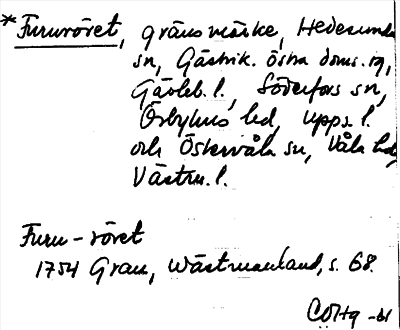 *Fururöret, gränsmärke, Hedesunda
sn, Gästrik. östra doms. sg,
Gävleb. l., Söderfors sn,
Örbyhus hd, Upps. l.
och Östervåla sn, Våla hd,
Västm. l.
Furu-röret
1754 Grau, Wästmanland, s. 68.